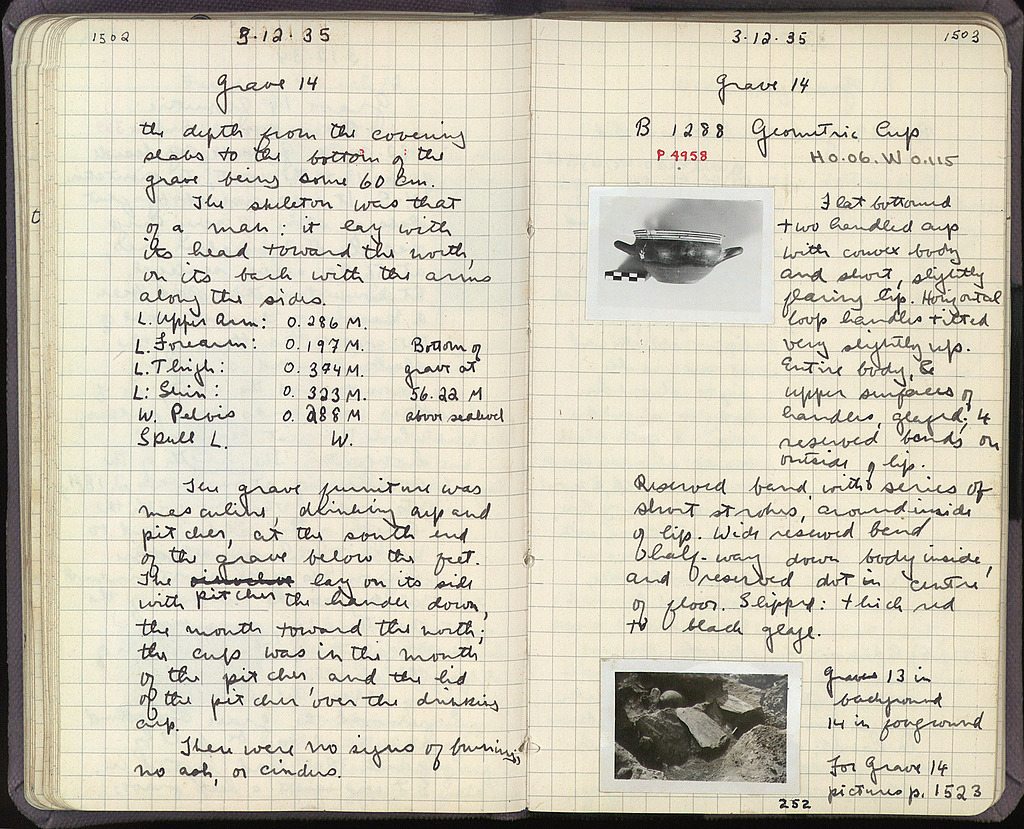 1502
3·12·35
Grave 14
the depth from the covering
slabs to the bottom of the
grave being some 60 cm.
The skeleton was that
of a man: it lay with
its head toward the north,
on its back with the arms
along the sides.
L. Upper Arm: 0.286 M.
L. Forearm: 0.197 M. Bottom of
L. Thigh: 0.374 M. grave at
L. Shin: 0.323 M. 56.22 M
W. Pelvis 0.288 M above sealevel
Skull L. W.
The grave furniture was
masculine, drinking cup and
pitcher, at the south end
of the grave below the feet.
The oinochoe lay on its side
with pitcher the handle down,
the mouth toward the north;
the cup was in the mouth
of the pitcher and the lid
of the pitcher over the drinking
cup.
There were no signs of burning,
no ash, or cinders.
3·12·35
1503
Grave 14
B 1288 Geometric Cup
P 4958 H 0.06. W 0.115
Flat bottomed
two handled cup
with convex body
and short, slightly
flaring lip. Horizontal
loop handles tilted
very slightly up.
Entire body, &
upper surfaces of
handles, glazed; 4
reserved bands on
outside of lip.
Reserved band, with series of
short strokes, around inside
of lip. Wide reserved band
half-way down body inside,
and reserved dot in centre
of floor. Slipped: thick red
to black glaze.
Grave 13 in
background
14 in foreground
For Grave 14
pictures p. 1523
252